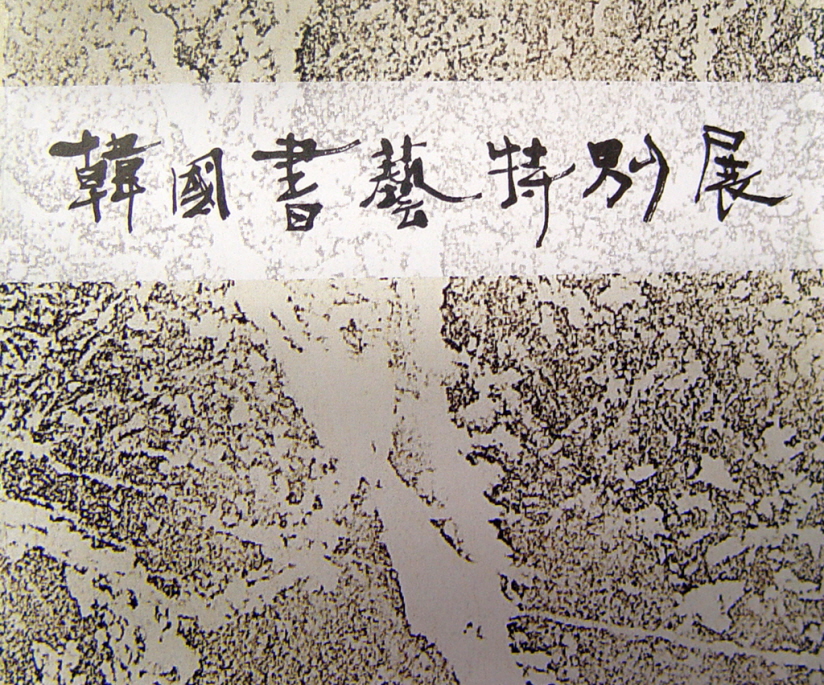 韓國書藝特別展